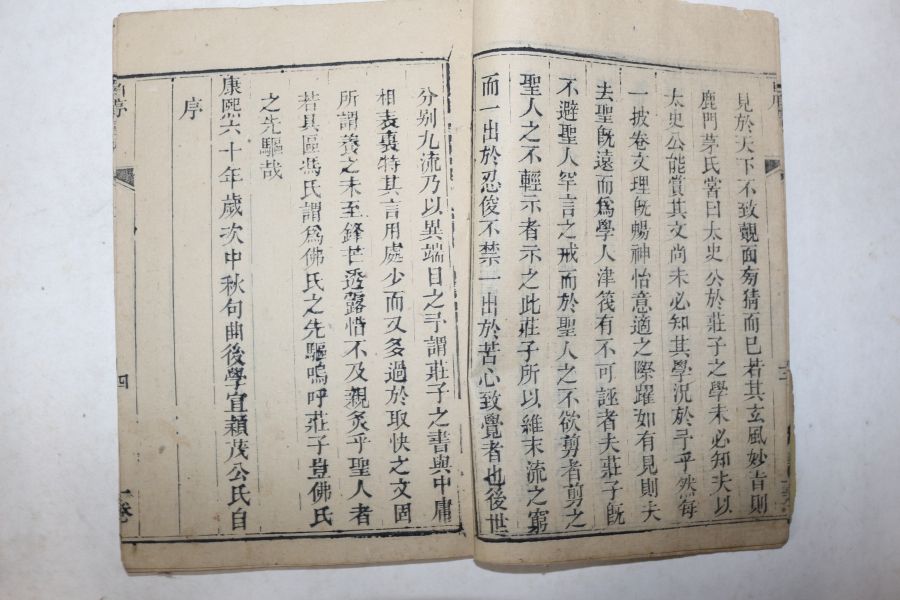 見於天下不致覿面芴猜而已若其玄風妙旨則
鹿門茅氏嘗曰太史公於莊子之學未必知夫以
太史公能賞其文尚未必知其學況於予乎然每
一披卷文理既暢神怡意適之際躍如有見則夫
去聖既遠而為學人津筏有不可誣者夫莊子既
不避聖人罕言之戒而於聖人之不欲剪者剪之
聖人之不輕示者示之此莊子所以維末流之窮
而一出於忍俊不禁一出於苦心致覺者也後世
分别九流乃以異端目之予謂莊子之書與中庸
相表裏特其言用處少而又多過於取快之文固
所謂養之未至鋒芒透露惜不及親炙乎聖人者
若具區馮氏謂為佛氏之先驅嗚呼莊子豈佛氏
之先驅哉
康熙六十年歲次中秋句曲後學宣穎茂公氏自
序
四